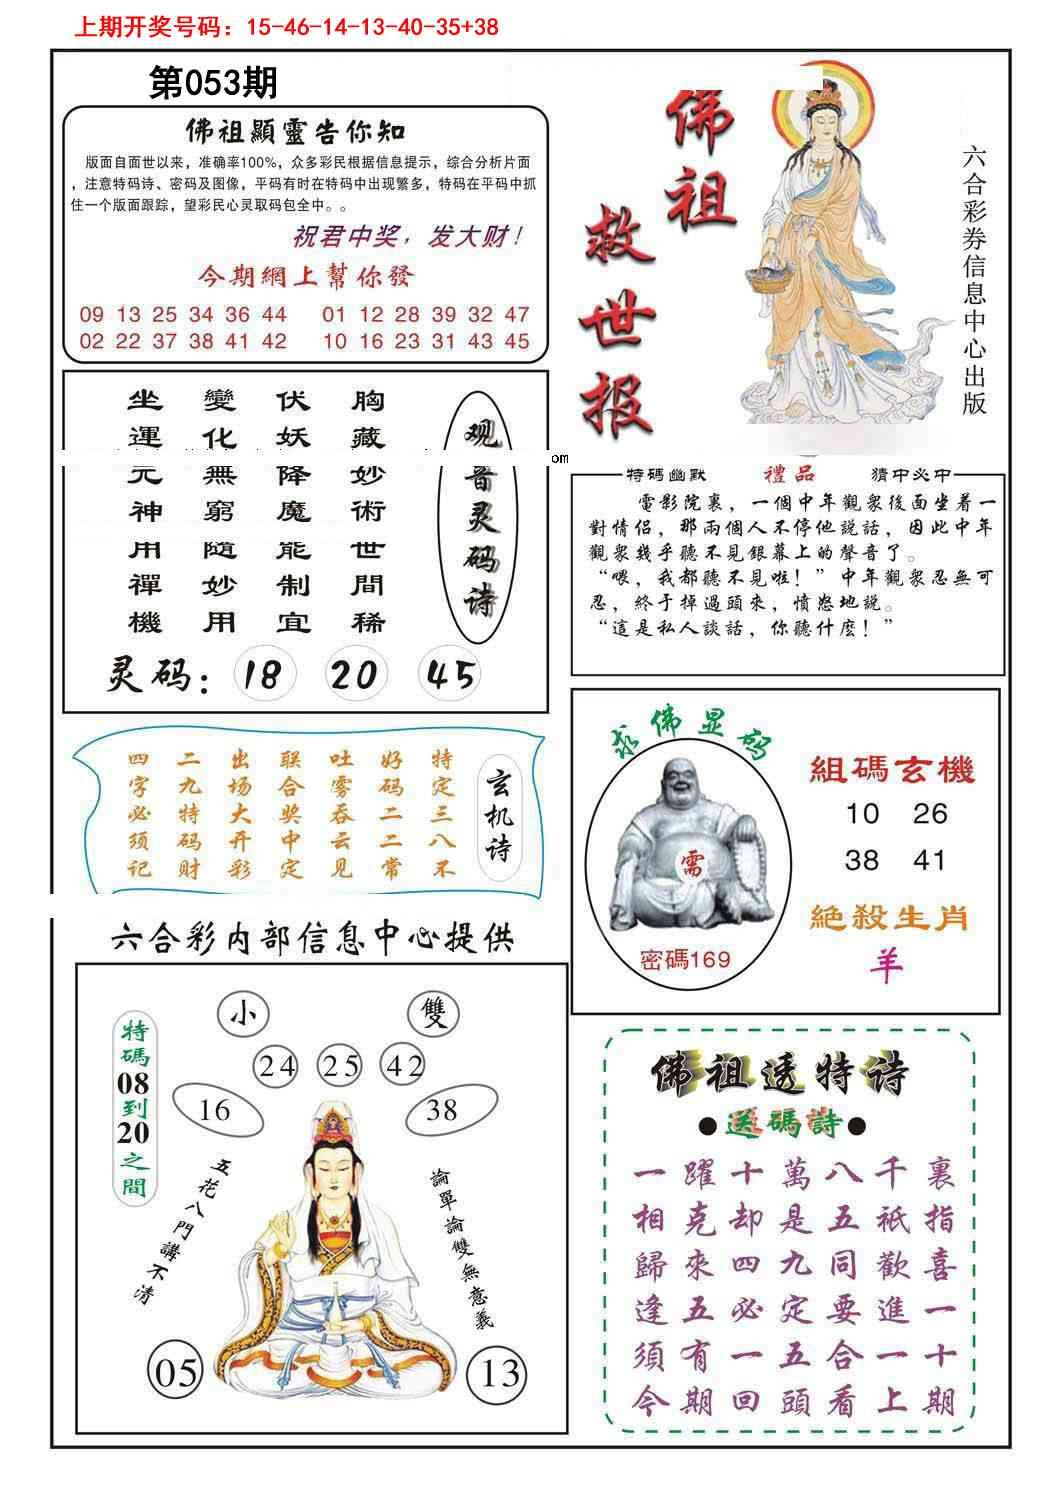 上期开奖号码：15-46-14-13-40-35+38
第053期
佛祖顯靈告你知
版面自面世以来，准确率100%，众多彩民根据信息提示，综合分析片面
，注意特码诗、密码及图像，平码有时在特码中出现繁多，特码在平码中抓
住一个版面跟踪，望彩民心灵取码包全中。。
祝君中奖，发大财！
今期網上幫你發
09 13 25 34 36 44 01 12 28 39 32 47
02 22 37 38 41 42 10 16 23 31 43 45
佛祖
救世报
六合彩券信息中心出版
观音灵码诗
胸藏妙術世間稀
伏妖降魔能制宜
變化無窮隨妙用
坐運元神用禪機
灵码：18 20 45
om
特碼幽默 禮品 猜中必中
電影院裏，一個中年觀衆後面坐着一
對情侣，那兩個人不停他説話，因此中年
觀衆幾乎聽不見銀幕上的聲音了。
“喂，我都聽不見啦！”中年觀衆忍無可
忍，終于掉過頭來，憤怒地説。
“這是私人談話，你聽什麽！”
玄机诗
特定三八不
好码二二常
吐雾吞云见
联合奖中定
出场大开彩
二九特码财
四字必须记
求佛显码
需
密碼169
組碼玄機
10 26
38 41
絶殺生肖
羊
六合彩内部信息中心提供
小 雙
24 25 42
16 38
特碼08到20之間
五花八門講不清
論單論雙無意義
05 13
佛祖透特诗
●送碼詩●
一躍十萬八千裏
相克却是五衹指
歸來四九同歡喜
逢五必定要進一
須有一五合一十
今期回頭看上期